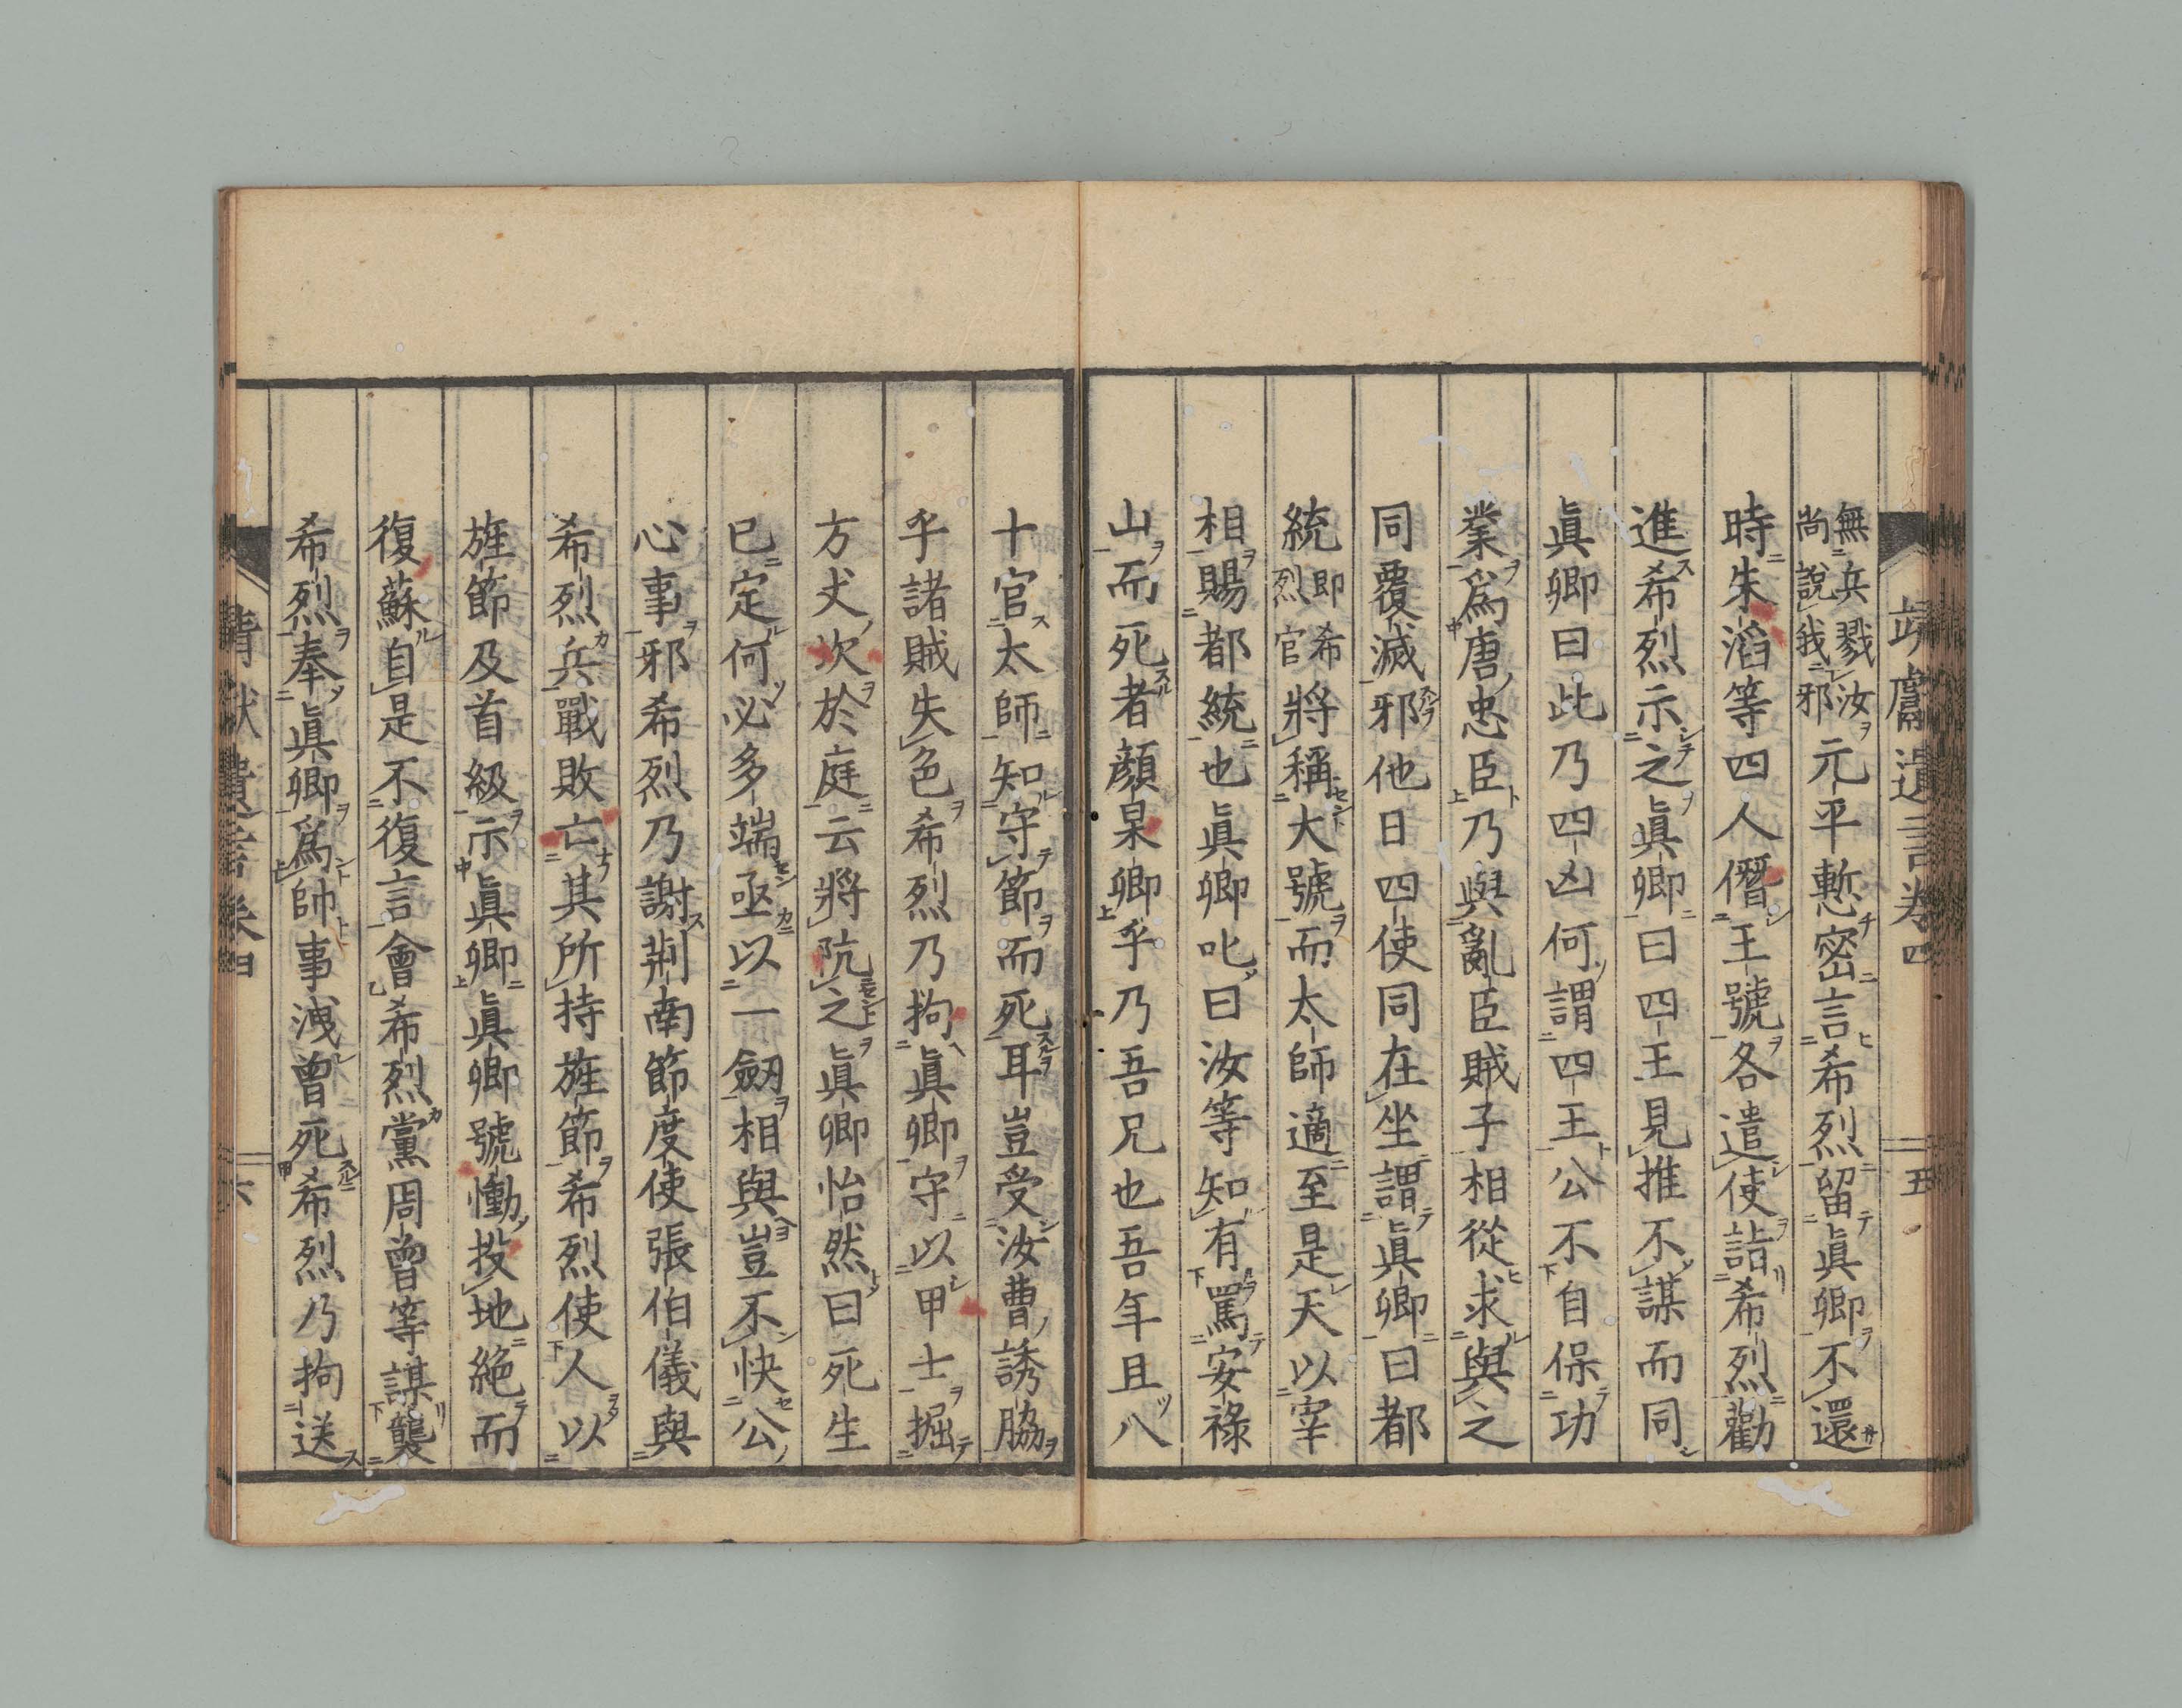 靖獻遺言卷四 五
無兵戮汝
尚說我邪
元平慙密言希烈留眞卿不還
時朱滔等四人僭王號各遣使詣希烈勸
進希烈示之眞卿曰四王見推不謀而同
眞卿曰此乃四凶何謂四王公不自保功
業爲唐忠臣乃與亂臣賊子相從求與之
同覆滅邪他日四使同在坐謂眞卿曰都
統即希烈官將稱大號而太師適至是天以宰
相賜都統也眞卿叱曰汝等知有罵安祿
山而死者顏杲卿乎乃吾兄也吾年且八
十官太師知守節而死耳豈受汝曹誘脇
乎諸賊失色希烈乃拘眞卿守以甲士掘
方丈坎於庭云將阬之眞卿怡然曰死生
已定何必多端亟以一劒相與豈不快公
心事邪希烈乃謝荆南節度使張伯儀與
希烈兵戰敗亡其所持旌節希烈使人以
旌節及首級示眞卿眞卿號慟投地絕而
復蘇自是不復言會希烈黨周曾等謀襲
希烈奉眞卿爲帥事洩曾死希烈乃拘送
靖獻遺言卷四 六